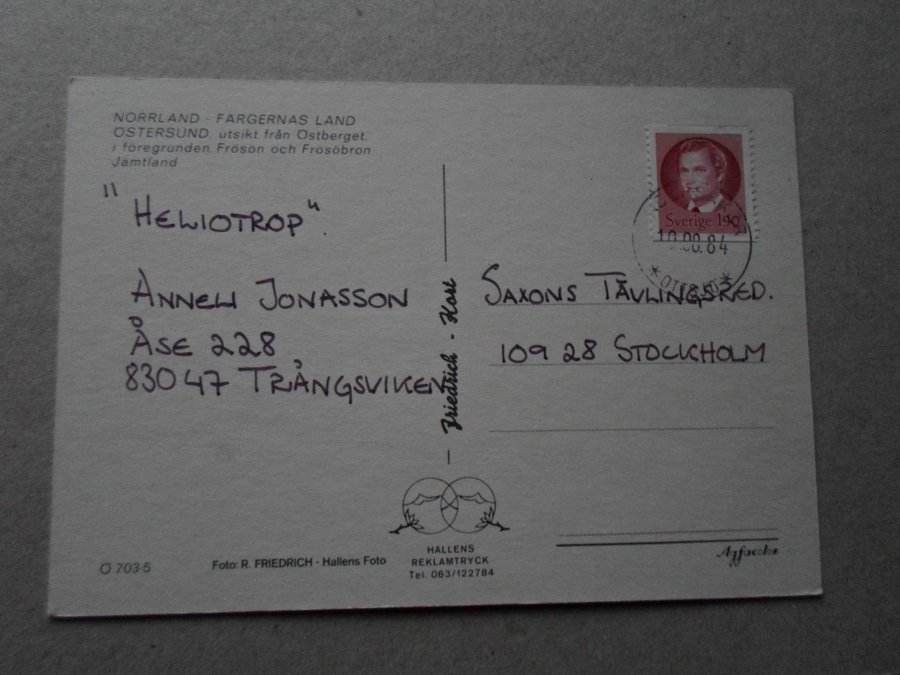 NORRLAND - FÄRGERNAS LAND
ÖSTERSUND, utsikt från Östberget,
i föregrunden Frösön och Frösöbron
Jämtland
"HELIOTROP"
ANNELI JONASSON
ÅSE 228
830 47 TRÅNGSVIKEN
Friedrich - Kort
Sverige 190
84
SAXONS TÄVLINGSRED.
109 28 STOCKHOLM
HALLENS
REKLAMTRYCK
Tel. 063/122784
Ö 703-5
Foto: R. FRIEDRICH - Hallens Foto
Agfacolor